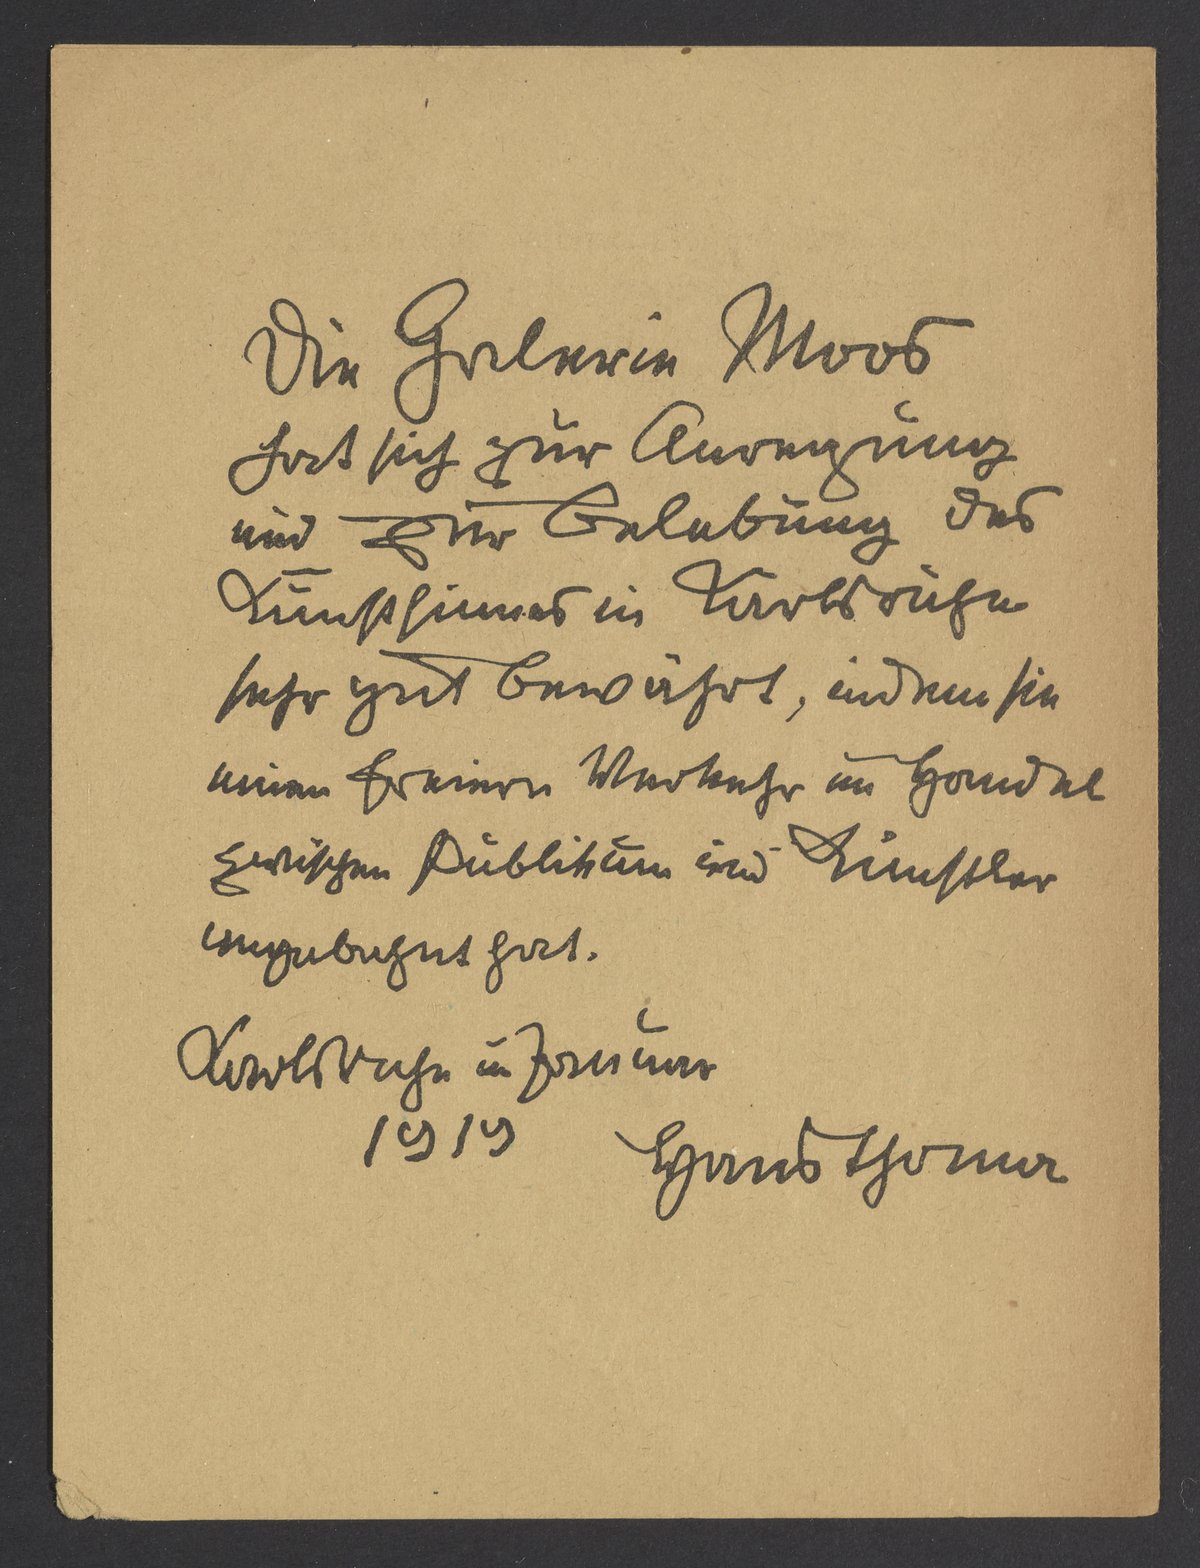 Die Galerie Moos
hat sich zur Anregung
und zur Belebung des
Kunstsinnes in Karlsruhe
sehr gut bewährt, indem sie
einen freiern Verkehr im Handel
zwischen Publikum und Künstler
angebahnt hat.
Karlsruhe im Januar
1919
Hans Thoma